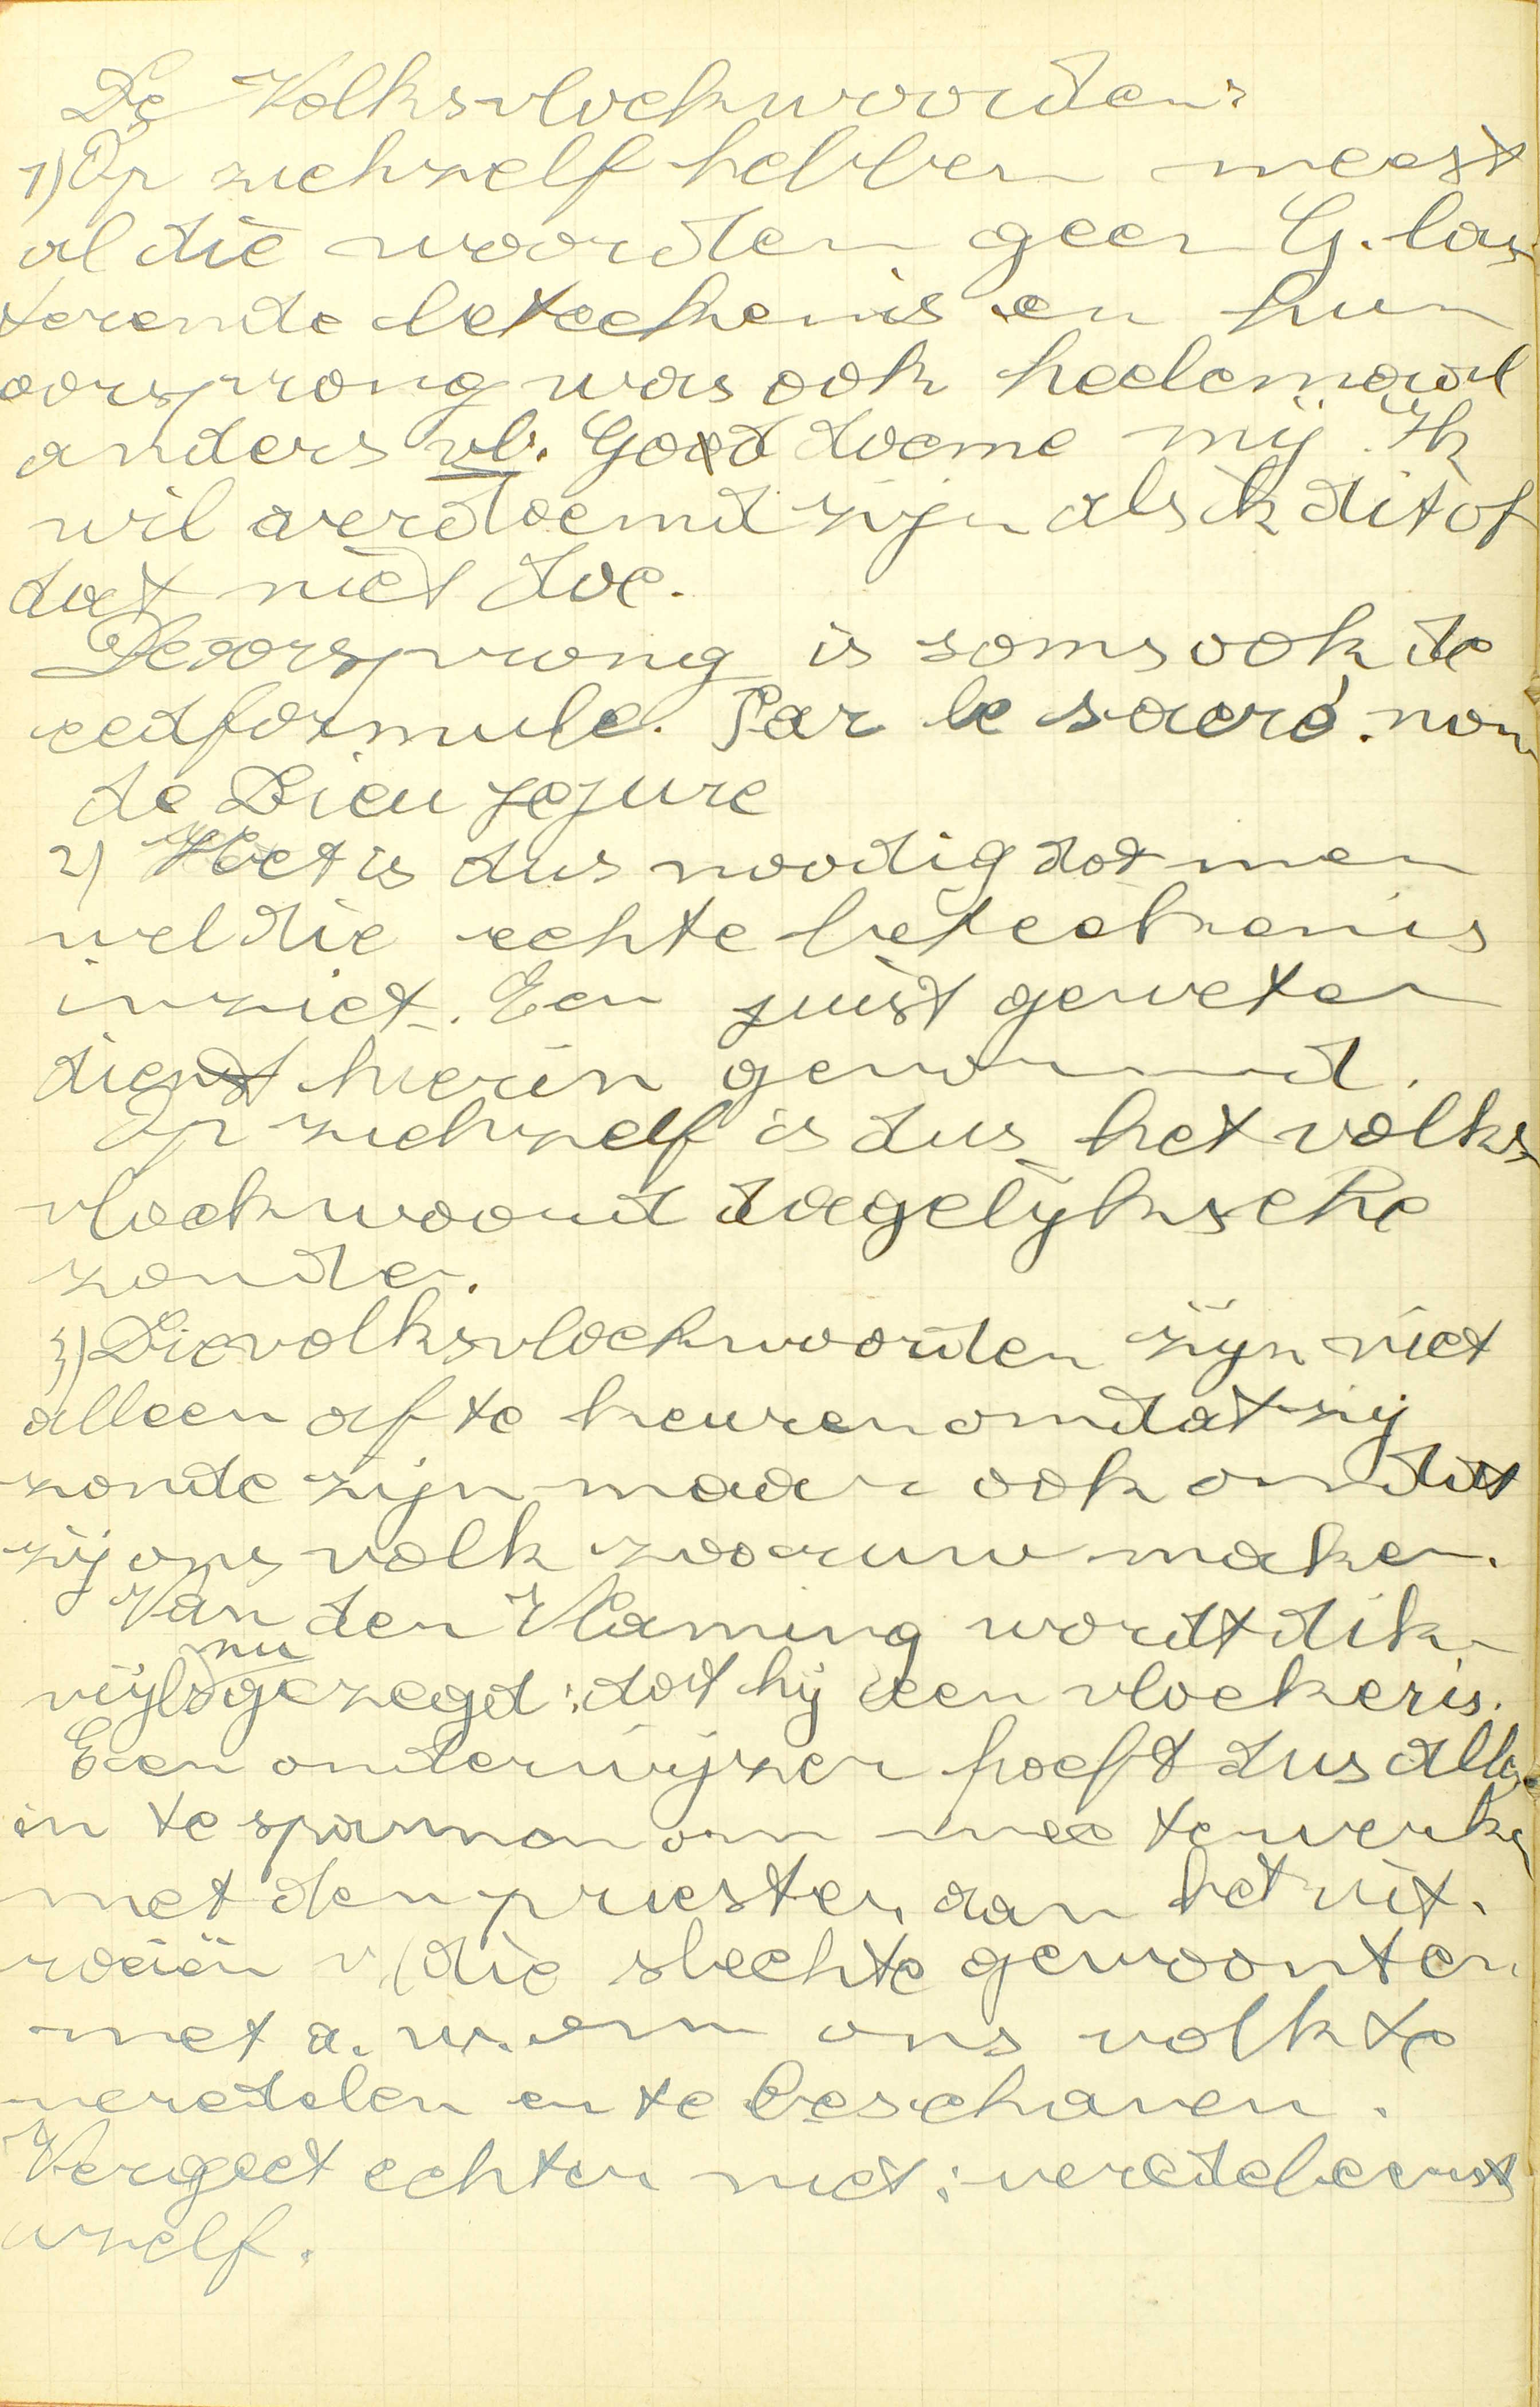 De Volksvloekwoorden:
1) Op zichzelf hebben meest
al die woorden geen G. las
terende beteekenis en hun
oorsprong was ook heelemaal
anders vb. God doeme mij. Ik
wil verdoemd zijn als ik dit of
dat niet doe.
De oorsprong is soms ook de
eedformule. Par le sacré nom
de Dieu je jure
2) Het is dus noodig dat men
wel die echte beteekenis
inziet. Een juist geweten
dient hierin gevormd.
Op zichzelf is dus het volks
vloekwoord dagelijksche
zonde.
3) Die volksvloekwoorden zijn niet
alleen af te keuren omdat zij
zonde zijn maar ook omdat
zij ons volk zoo ruw maken.
Van den Vlaming wordt dik-
wijls nu gezegd: dat hij een vloeker is.
Een onderwijzer hoeft dus alles
in te spannen om mee te werken
met den priester, aan het uit-
roeiën v/ die slechte gewoonten
met a. w. om ons volk te
veredelen en te beschaven.
Vergeet echter niet: veredel eerst
uzelf.